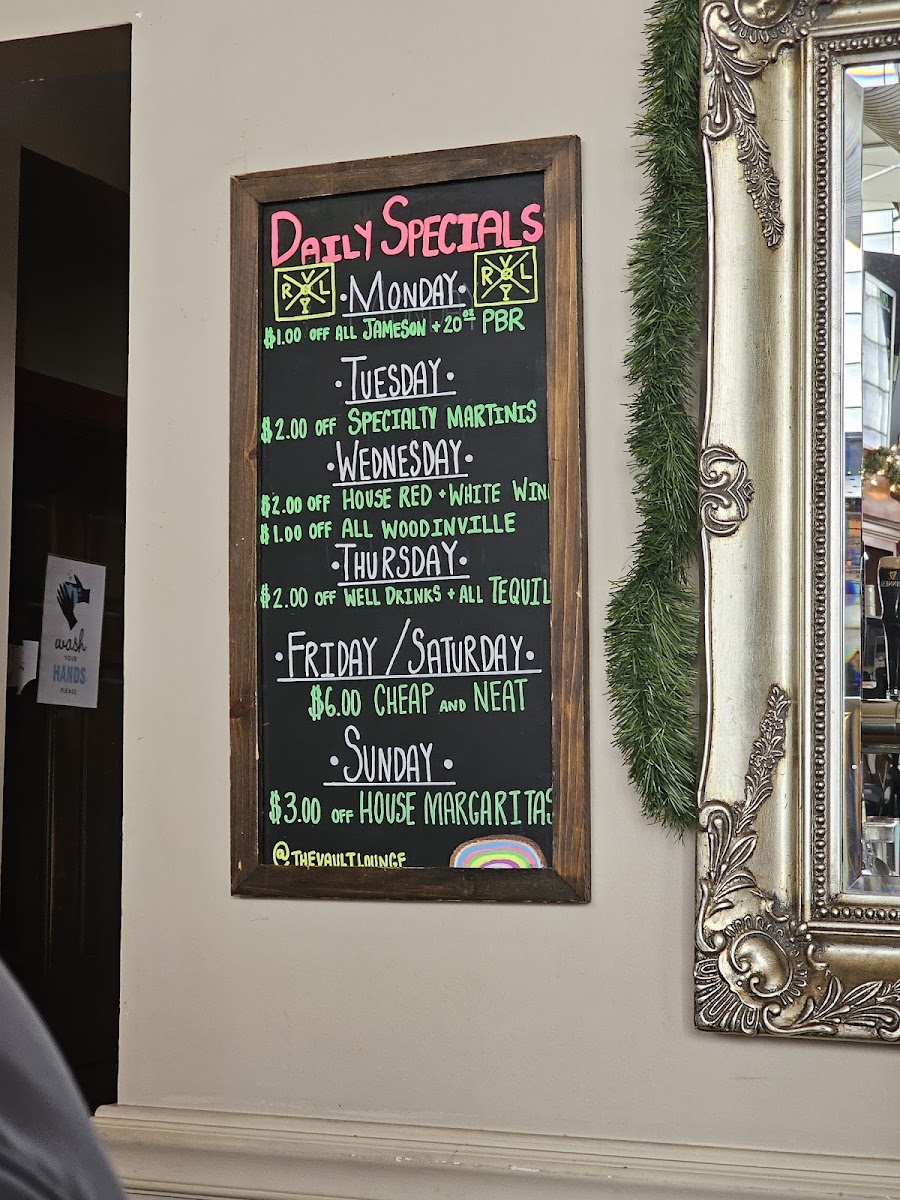 DAILY SPECIALS
RVLTY RVLTY
·MONDAY·
$1.00 OFF ALL JAMESON + 20 oz PBR
·TUESDAY·
$2.00 OFF SPECIALTY MARTINIS
·WEDNESDAY·
$2.00 OFF HOUSE RED + WHITE WIN
$1.00 OFF ALL WOODINVILLE
·THURSDAY·
$2.00 OFF WELL DRINKS + ALL TEQUIL
·FRIDAY / SATURDAY·
$6.00 CHEAP AND NEAT
·SUNDAY·
$3.00 OFF HOUSE MARGARITAS
@THEVAULTLOUNGE
wash
YOUR
HANDS
PLEASE